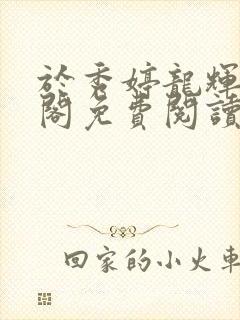 於秀婷龍輝
閣免費閱讀
回家的小火車